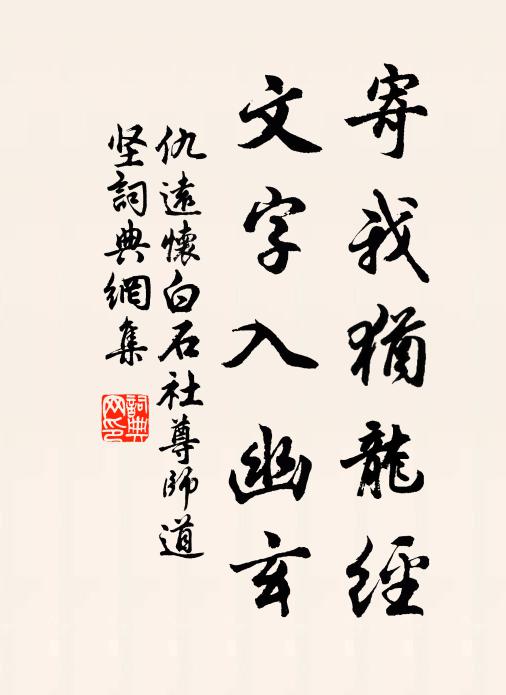 寄我猶龍經
文字入幽玄
仇遠懷白石社尊師道
坚詞典網集
詞典网印